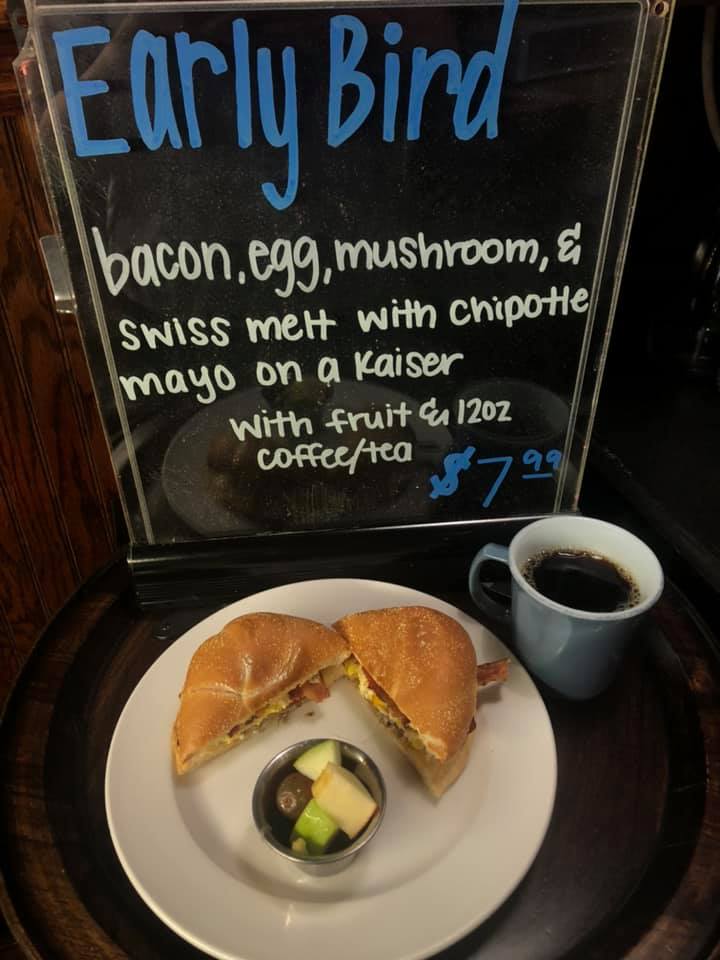 Early Bird
bacon, egg, mushroom, &
swiss melt with chipotle
mayo on a Kaiser
with fruit & 12oz
coffee/tea
$7.99